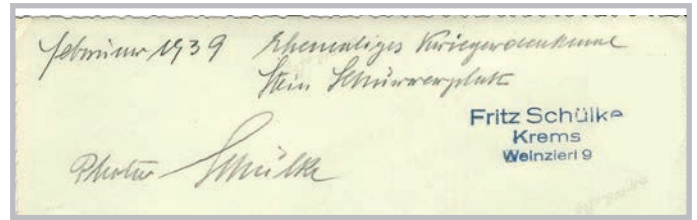 Februar 1939 Ehemaliges Kriegerdenkmal
Stein Schürrerplatz
Fritz Schülke
Krems
Weinzierl 9
Photo Schülke